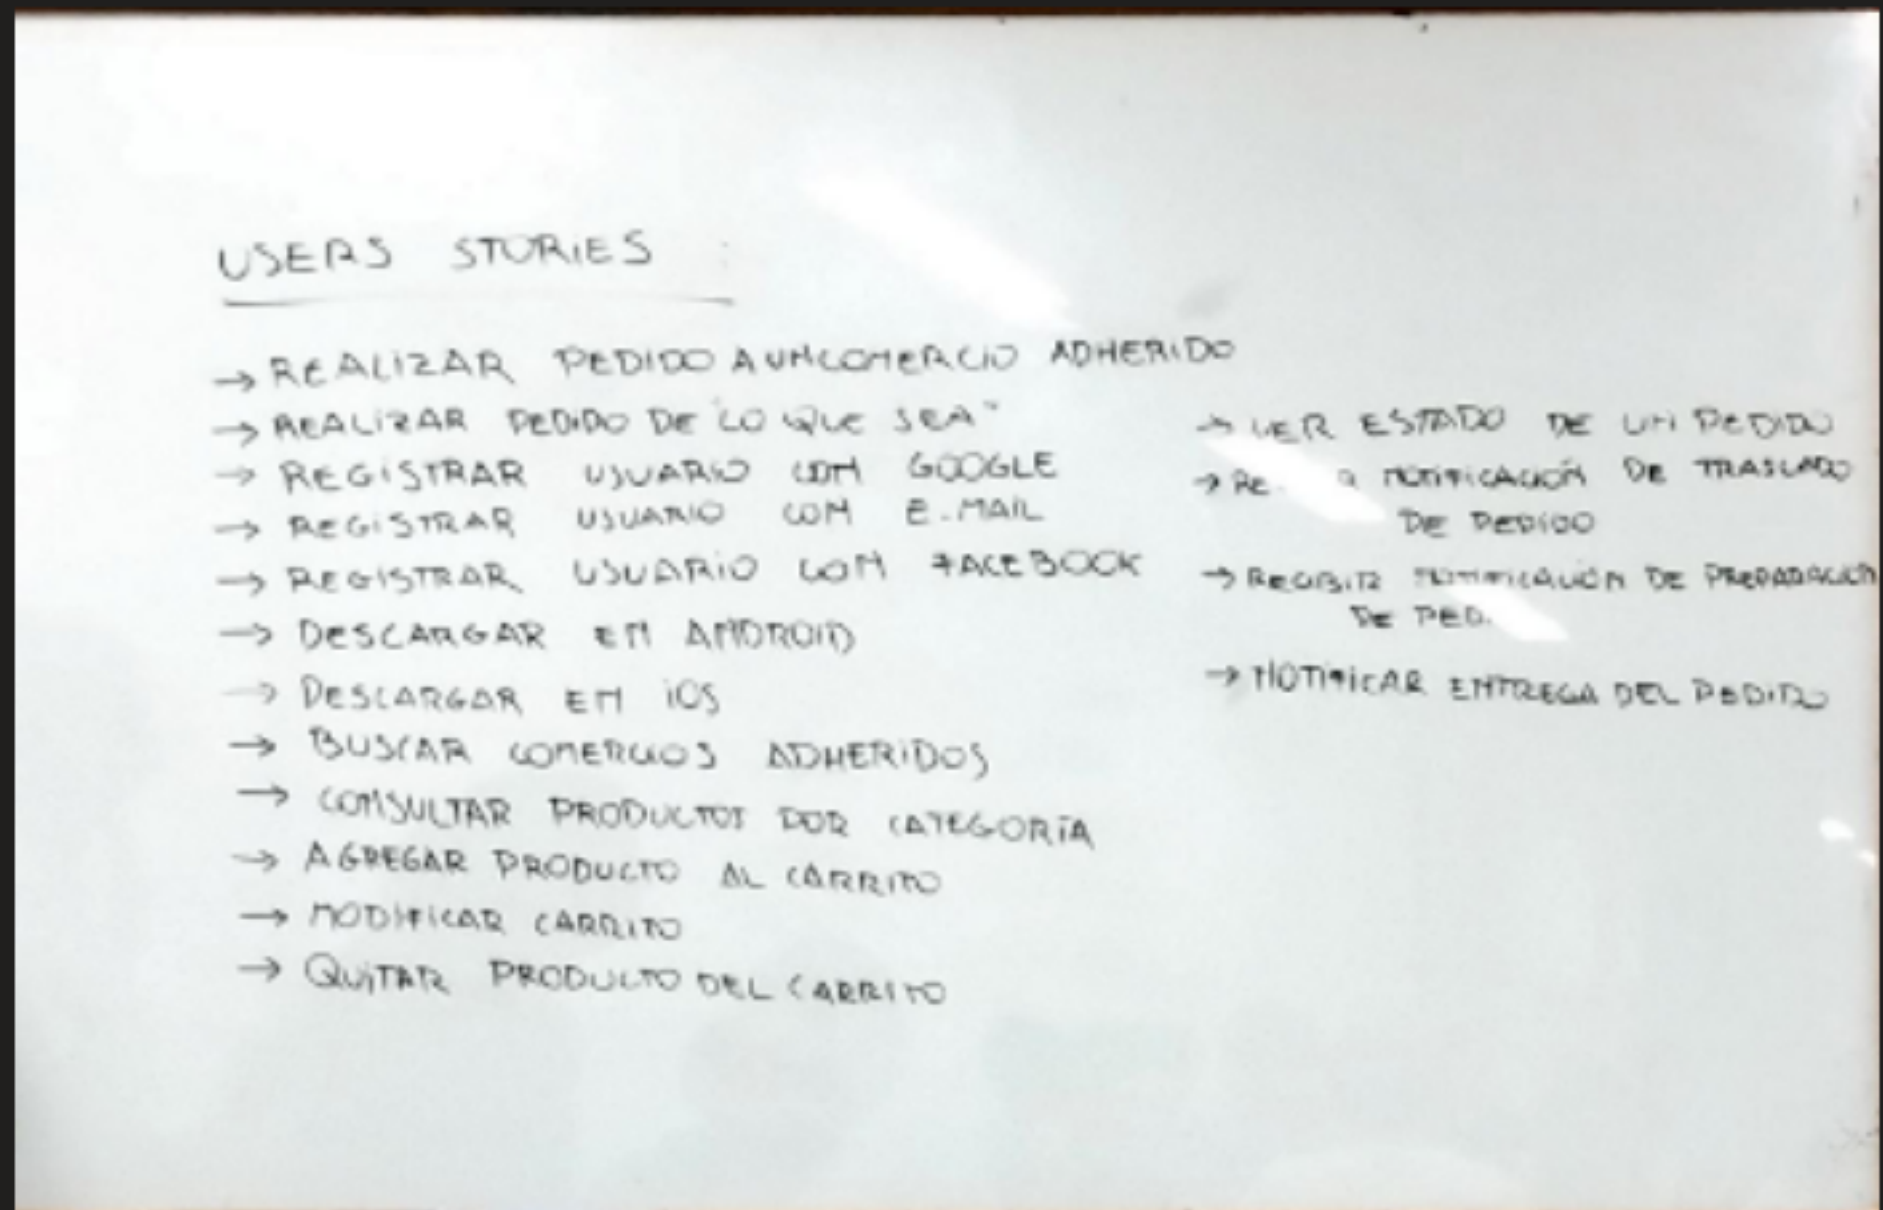 USERS STORIES
→ REALIZAR PEDIDO A UN COMERCIO ADHERIDO
→ REALIZAR PEDIDO DE "LO QUE SEA"
→ REGISTRAR USUARIO CON GOOGLE
→ REGISTRAR USUARIO CON E-MAIL
→ REGISTRAR USUARIO CON FACEBOOK
→ DESCARGAR EN ANDROID
→ DESCARGAR EN iOS
→ BUSCAR COMERCIOS ADHERIDOS
→ CONSULTAR PRODUCTOS POR CATEGORÍA
→ AGREGAR PRODUCTO AL CARRITO
→ MODIFICAR CARRITO
→ QUITAR PRODUCTO DEL CARRITO
→ VER ESTADO DE UN PEDIDO
→ NOTIFICACIÓN DE TRASLADO
DE PEDIDO
→ RECIBIR NOTIFICACIÓN DE PREPARACIÓN
DE PED.
→ NOTIFICAR ENTREGA DEL PEDIDO